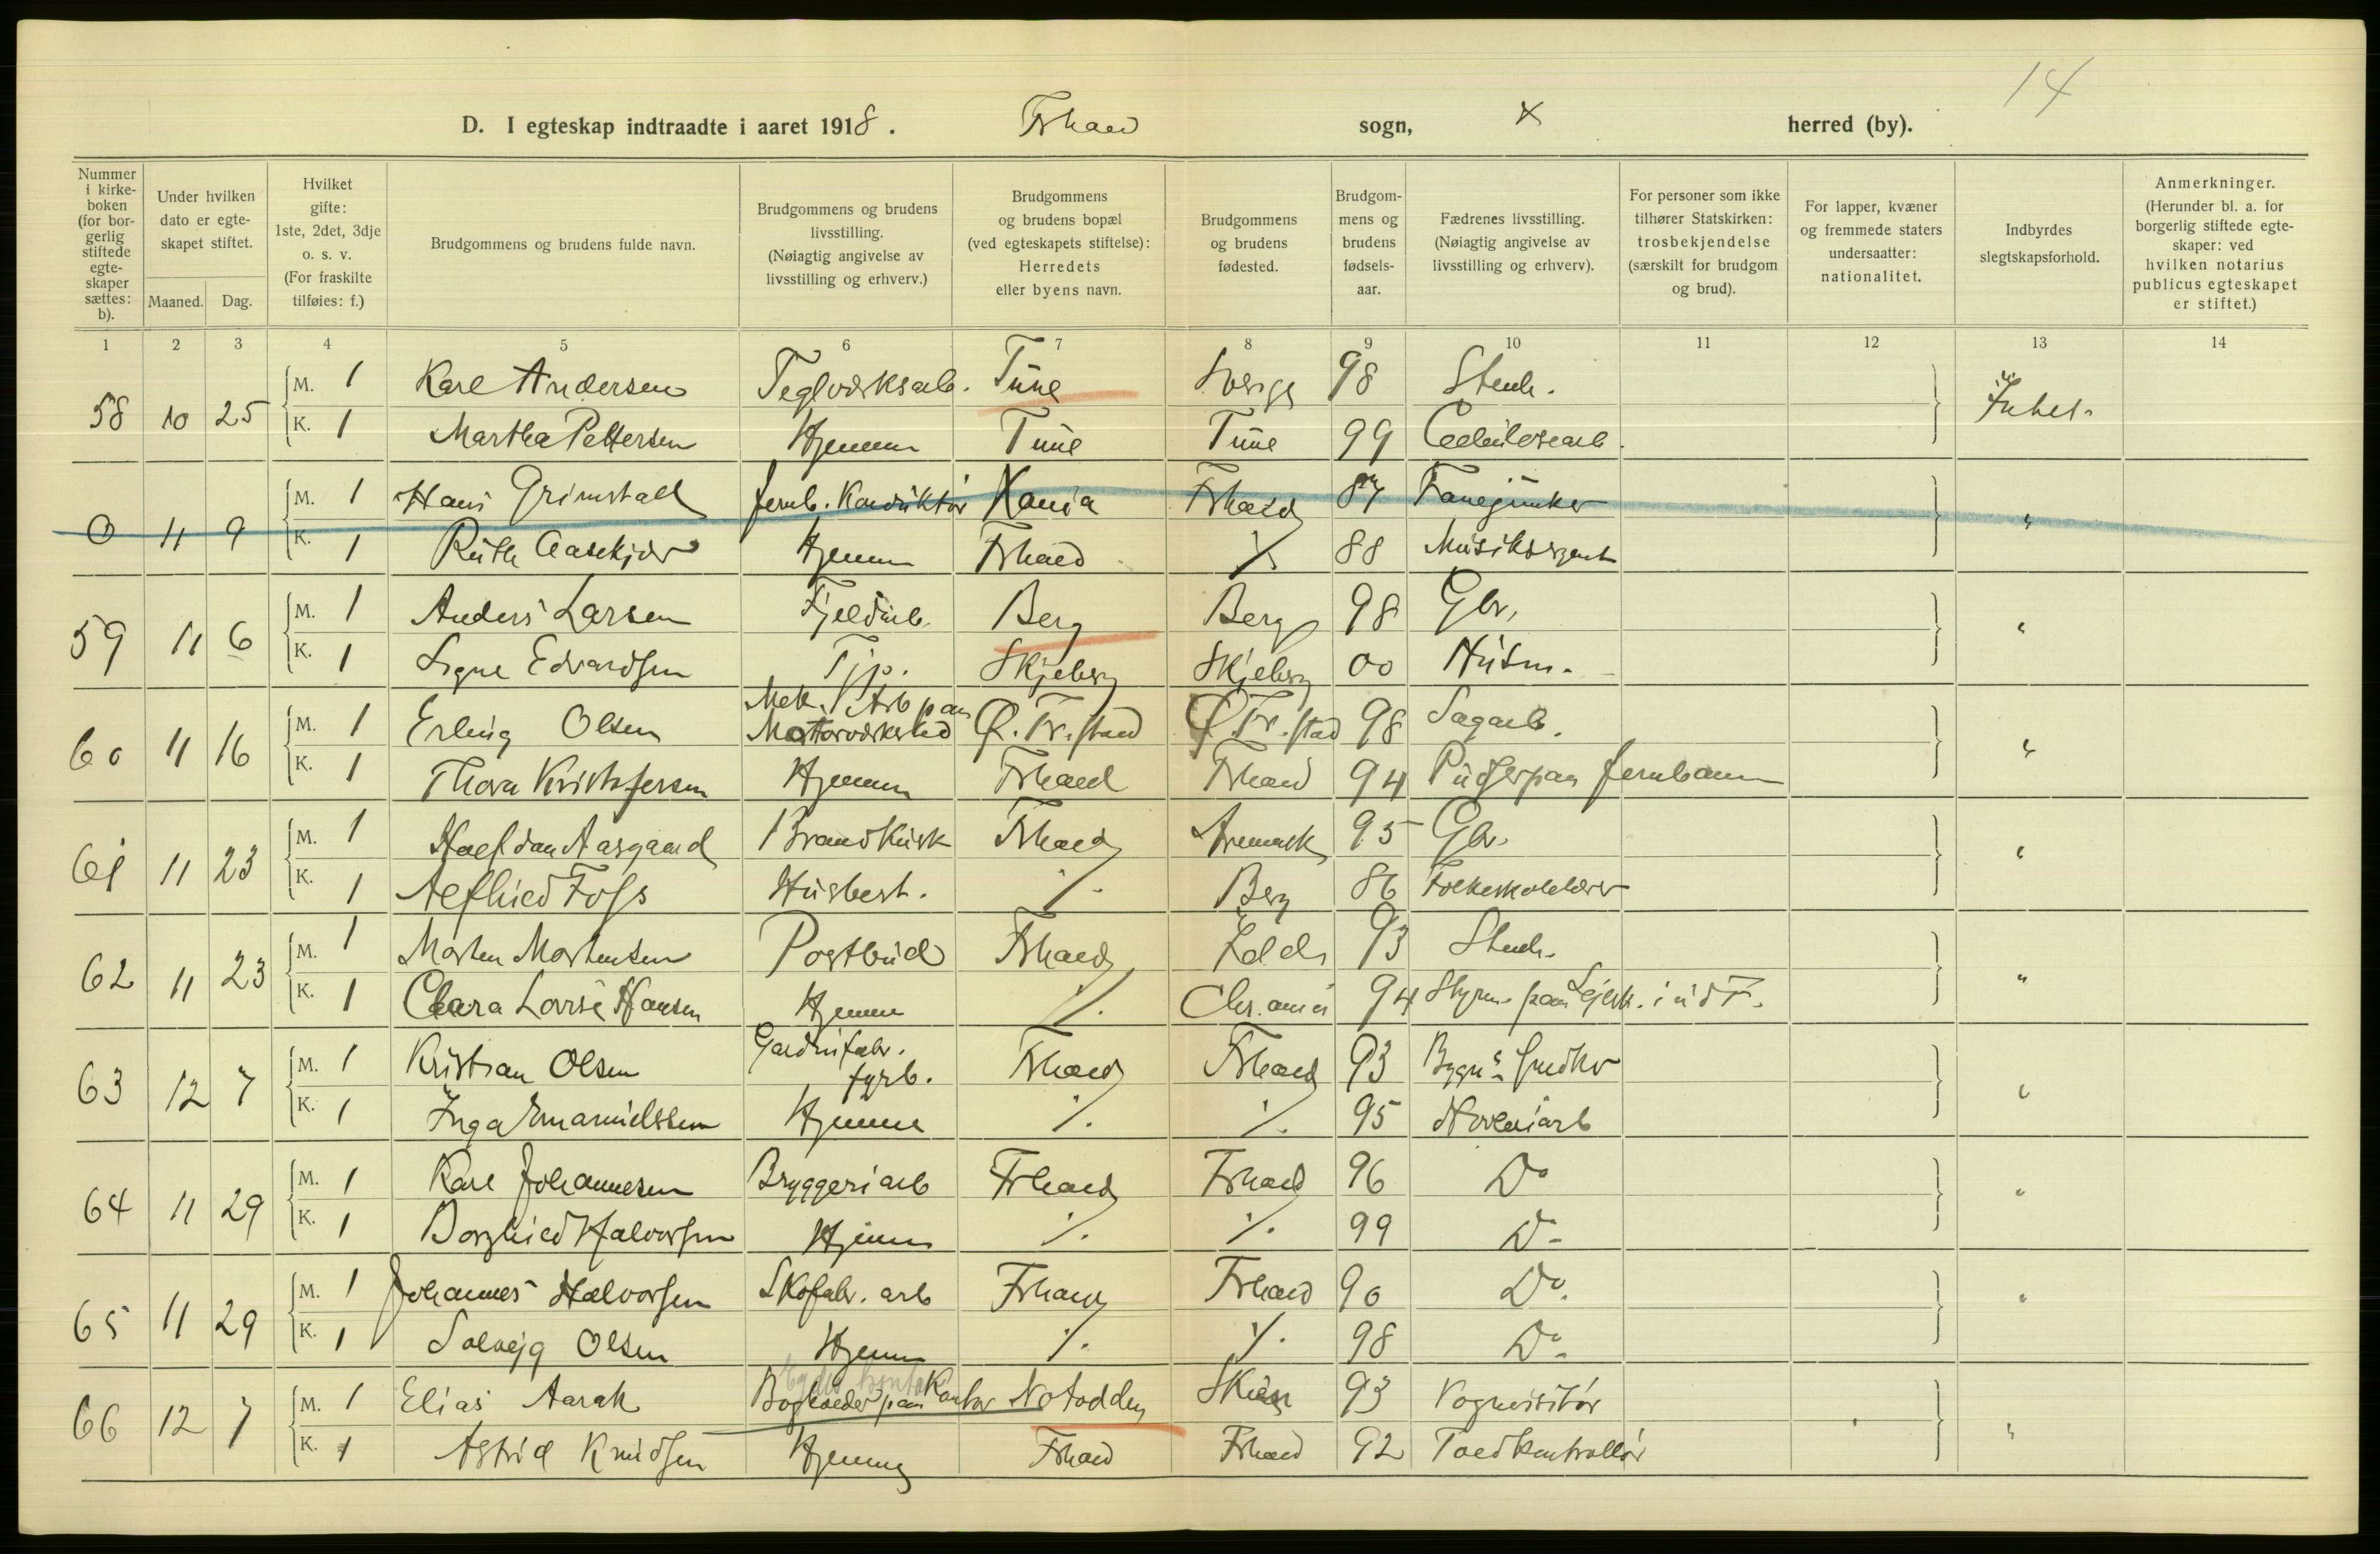 14
D. I egteskap indtraadte i aaret 1918. Frhald sogn, x herred (by).
Nummer i kirke-boken (for bor-gerlig stiftede egte-skaper sættes: b).
Under hvilken dato er egte-skapet stiftet.
Maaned. Dag.
Hvilket gifte: 1ste, 2det, 3dje o. s. v. (For fraskilte tilføies: f.)
Brudgommens og brudens fulde navn.
Brudgommens og brudens livsstilling. (Nøiagtig angivelse av livsstilling og erhverv.)
Brudgommens og brudens bopæl (ved egteskapets stiftelse): Herredets eller byens navn.
Brudgommens og brudens fødested.
Brudgom-mens og brudens fødsels-aar.
Fædrenes livsstilling. (Nøiagtig angivelse av livsstilling og erhverv).
For personer som ikke tilhører Statskirken: trosbekjendelse (særskilt for brudgom og brud).
For lapper, kvæner og fremmede staters undersaatter: nationalitet.
Indbyrdes slegtskapsforhold.
Anmerkninger. (Herunder bl. a. for borgerlig stiftede egte-skaper: ved hvilken notarius publicus egteskapet er stiftet.)
1 2 3 4 5 6 7 8 9 10 11 12 13 14
58 10 25 M. 1 Karl Andersen Teglværksarb. Tune Sverge 98 Stenh. Intet.
K. 1 Martha Pettersen Hjemme Tune Tune 99 Cellulosearb.
0 11 9 M. 1 Hans Grimstad Jernb. Konduktør Kania Frhald 87 Fanejunker "
K. 1 Ruth Aaskjær Hjemme Frhald ./. 88 Musiksergent
59 11 6 M. 1 Anders Larsen Fjeldarb. Berg Berg 98 Gbr. "
K. 1 Signe Edvardsen Tjp. Skjeberg Skjeberg 00 Husm.
60 11 16 M. 1 Erling Olsen Mek. Arb paa Motorværksted Ø. Fr. stad Ø. Fr. stad 98 Sagarb. "
K. 1 Thora Kristofersen Hjemme Frhald Frhald 94 Pudser paa Jernbanen
61 11 23 M. 1 Halfdan Aasgaard Brandkusk Frhald Aremark 95 Gbr. "
K. 1 Alfhild Foss Husbest. ./. Berg 86 Folkeskolelærer
62 11 23 M. 1 Morten Mortensen Postbud Frhald Idd 93 Stenh. "
K. 1 Clara Lovise Hansen Hjemme ./. Chr.ania 94 Styrm. paa Sejlsk. i ud F.
63 12 7 M. 1 Kristian Olsen Gardinfabr. fyrb. Frhald Frhald 93 Bygn.s Snedker "
K. 1 Inga Emanuelssen Hjemme ./. ./. 95 Høvleriarb
64 11 29 M. 1 Karl Johannesen Bryggeriarb Frhald Frhald 96 Do "
K. 1 Borghild Halvorsen Hjemme ./. ./. 99 Do
65 11 29 M. 1 Johannes Halvorsen Skofabr. arb Frhald Frhald 90 Do. "
K. 1 Solvejg Olsen Hjemme ./. ./. 98 Do
66 12 7 M. 1 Elias Aarak Bogholder paa Kontor Notodden Skien 93 Vognvisitør "
K. 1 Astrid Knudsen Hjemme Frhald Frhald 92 Toldkontrollør